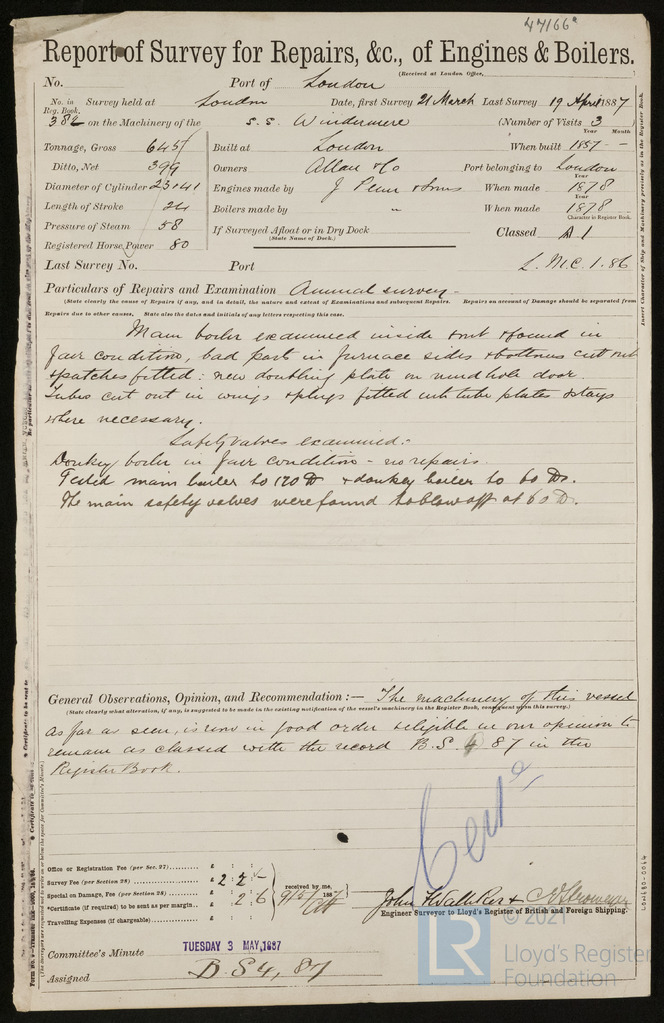 47166a
Report of Survey for Repairs, &c., of Engines & Boilers.
(Received at London Office,
No. Port of London
No. in Reg. Book. Survey held at London Date, first Survey 21 March Last Survey 19 April 1887
382 on the Machinery of the S.S. Windermere (Number of Visits 3)
Year Month
Tonnage, Gross 645 Built at London When built 1857 --
Ditto, Net 399 Owners Allan & Co Port belonging to London
Diameter of Cylinder 23 & 41 Engines made by J Penn & Sons When made 1878
Length of Stroke 24 Boilers made by " When made 1878
Pressure of Steam 58 If Surveyed Afloat or in Dry Dock Classed A 1
(State Name of Dock.) Character in Register Book.
Registered Horse Power 80
Last Survey No. Port L.M.C. 1.86
Particulars of Repairs and Examination Annual survey -
(State clearly the cause of Repairs if any, and in detail, the nature and extent of Examinations and subsequent Repairs. Repairs on account of Damage should be separated from
Repairs due to other causes. State also the dates and initials of any letters respecting this case.
Main boiler examined inside & out & found in
fair condition, bad parts in furnace sides & bottoms cut out
& patches fitted: new doubling plate on mud hole door.
Tubes cut out in wings & plugs fitted with tube plates & stays
where necessary.
Safety valves examined:-
Donkey boiler in fair condition - no repairs.
Tested main boiler to 120 lb & donkey boiler to 60 lbs.
The main safety valves were found to blow off at 60 lb.
General Observations, Opinion, and Recommendation :— The machinery of this vessel
(State clearly what alteration, if any, is suggested to be made in the existing notification of the vessel's machinery in the Register Book, consequent upon this survey.)
as far as seen, is now in good order & eligible in our opinion to
remain as classed with the record B.S. 4 87 in the
Register Book.
Office or Registration Fee (per Sec. 27) £ : :
Survey Fee (per Section 28) £ 2 : 2 : -
Special on Damage, Fee (per Section 28) £ : :
*Certificate (if required) to be sent as per margin £ : 2 : 6
Travelling Expenses (if chargeable) £ : :
received by me, 9/5/1887
Engineer Surveyor to Lloyd's Register of British and Foreign Shipping.
Committee's Minute TUESDAY 3 MAY, 1887
Assigned B.S 4, 87
© 2021
LR
Lloyd's Register
Foundation
Insert Character of Ship and Machinery precisely as in the Register Book.